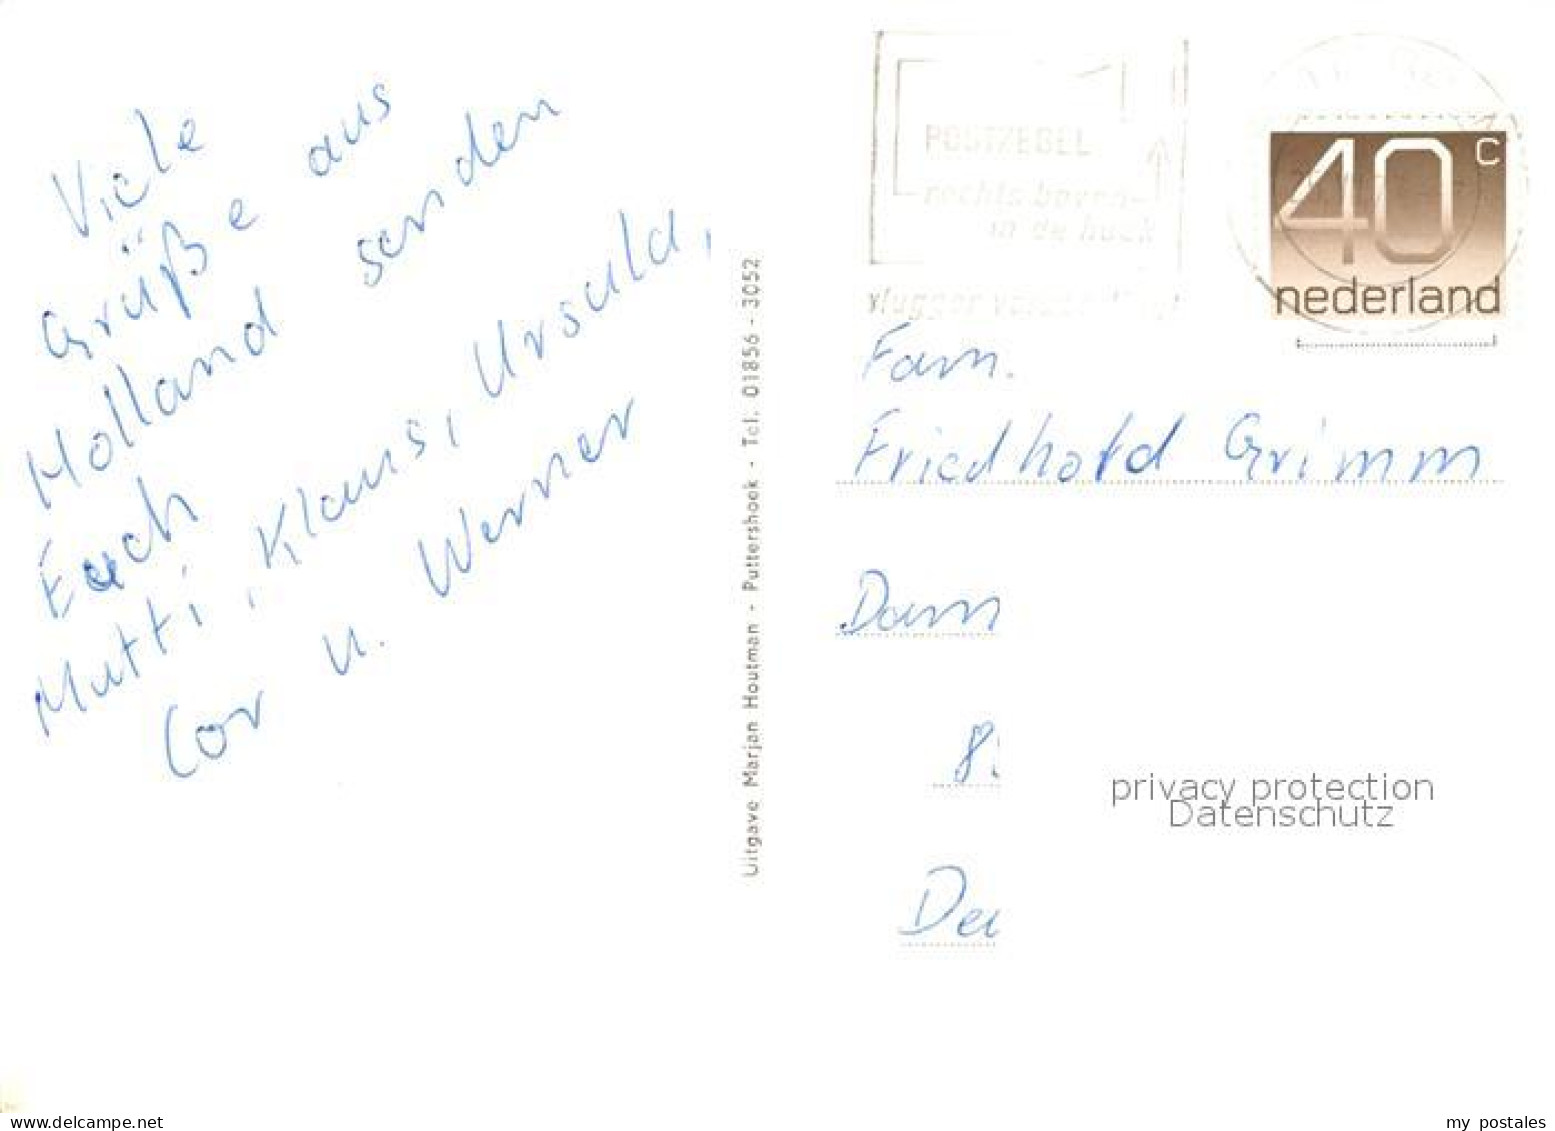 Viele
Grüße aus
Holland senden
Euch
Mutti, Klaus, Ursula,
Cor u. Werner
Uitgave Marjan Houtman - Puttershoek - Tel. 01856 - 3052
POSTZEGEL
rechts boven
in de hoek
vlugger
40 c
nederland
Fam.
Friedhold Grimm
privacy protection
Datenschutz
my postales